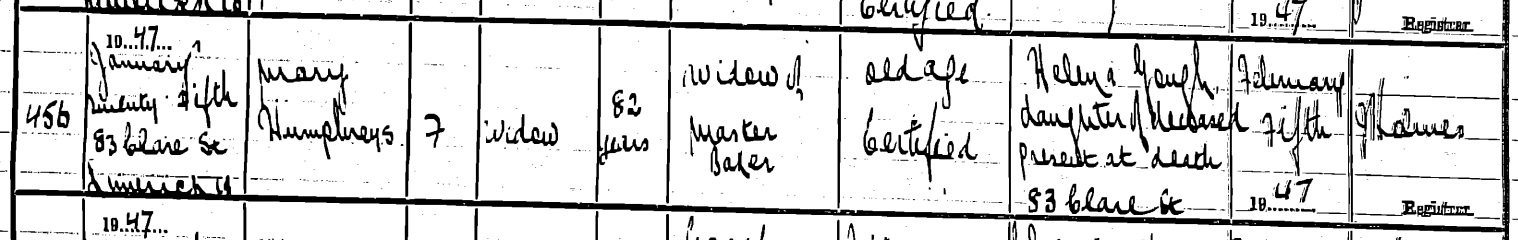 Certified
19 47
Registrar
456
19 47
January
Twenty Fifth
83 Clare St
Limerick
Mary
Humphreys
F
Widow
82
years
Widow of
Master
Baker
old age
Certified
Helena Gough
daughter of deceased
present at death
83 Clare St
February
Fifth
19 47
Registrar
19 47